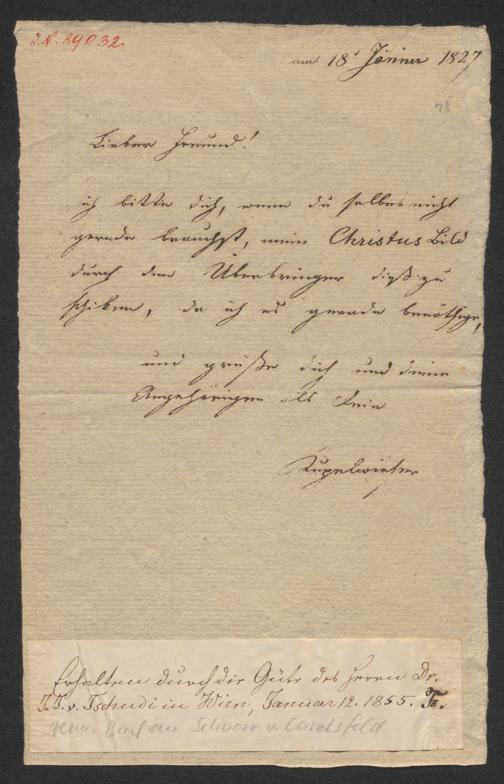 I.N. 89032
am 18t Jänner 1827
78
Lieber Freund!
ich bitte dich, wenn du selbes nicht
gerade brauchst, mein Christus Bild
durch den Überbringer diß zu
schiken, da ich es gerade benöthige,
und grüße dich und deine
Angehörigen als dein
Kupelwieser
Erhalten durch die Güte des Herrn Dr.
J. J. v. Tschudi in Wien, Januar 12. 1855. Fr.
Brief an Schnorr v. Carolsfeld